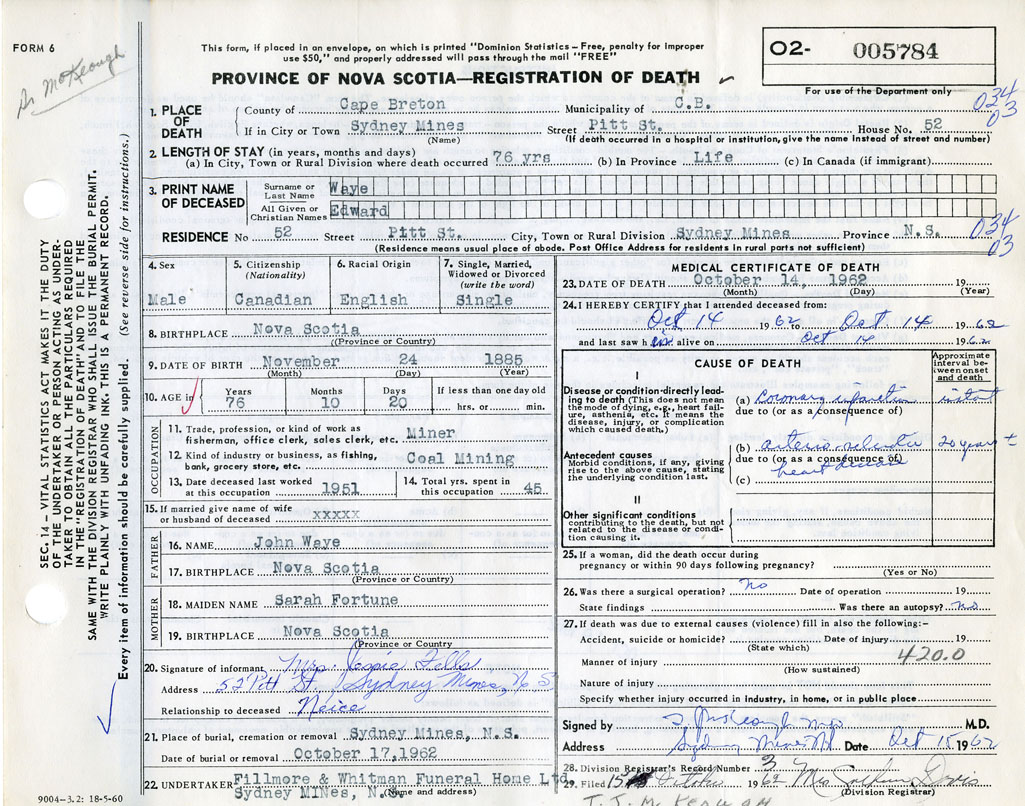 FORM 6
Dr. McKeough
This form, if placed in an envelope, on which is printed "Dominion Statistics – Free, penalty for improper
use $50," and properly addressed will pass through the mail "FREE"
O2- 005784
PROVINCE OF NOVA SCOTIA—REGISTRATION OF DEATH
For use of the Department only
034
03
1. PLACE OF DEATH
County of Cape Breton Municipality of C.B.
If in City or Town Sydney Mines Street Pitt St. House No. 52
(Name) (If death occurred in a hospital or institution, give the name instead of street and number)
2. LENGTH OF STAY (in years, months and days)
(a) In City, Town or Rural Division where death occurred 76 yrs (b) In Province Life (c) In Canada (if immigrant)
3. PRINT NAME OF DECEASED
Surname or Last Name Waye
All Given or Christian Names Edward
RESIDENCE No 52 Street Pitt St. City, Town or Rural Division Sydney Mines Province N.S.
034
03
(Residence means usual place of abode. Post Office Address for residents in rural parts not sufficient)
4. Sex
Male
5. Citizenship
(Nationality)
Canadian
6. Racial Origin
English
7. Single, Married,
Widowed or Divorced
(write the word)
Single
8. BIRTHPLACE Nova Scotia
(Province or Country)
9. DATE OF BIRTH November 24 1885
(Month) (Day) (Year)
10. AGE in
Years Months Days If less than one day old
76 10 20 hrs. or min.
OCCUPATION
11. Trade, profession, or kind of work as
fisherman, office clerk, sales clerk, etc. Miner
12. Kind of industry or business, as fishing,
bank, grocery store, etc. Coal Mining
13. Date deceased last worked
at this occupation 1951
14. Total yrs. spent in
this occupation 45
15. If married give name of wife
or husband of deceased xxxxx
FATHER
16. NAME John Waye
17. BIRTHPLACE Nova Scotia
(Province or Country)
MOTHER
18. MAIDEN NAME Sarah Fortune
19. BIRTHPLACE Nova Scotia
(Province or Country)
20. Signature of informant Mrs. Jessie Fells
Address 52 Pitt St. Sydney Mines, N S
Relationship to deceased Neice
21. Place of burial, cremation or removal Sydney Mines, N.S.
Date of burial or removal October 17,1962
22. UNDERTAKER Fillmore & Whitman Funeral Home Ltd
Sydney MINes, N.S.
(Name and address)
MEDICAL CERTIFICATE OF DEATH
23. DATE OF DEATH October 14, 1962
(Month) (Day) (Year)
24. I HEREBY CERTIFY that I attended deceased from:
Oct 14 1962 to Oct. 14 1962
and last saw him alive on Oct 14 1962
CAUSE OF DEATH
Approximate
interval be-
tween onset
and death
I
Disease or condition directly lead-
ing to death (This does not mean
the mode of dying, e.g., heart fail-
ure, asthenia, etc. It means the
disease, injury, or complication
which caused death.)
(a) Coronary infarction instant
due to (or as a consequence of)
Antecedent causes
Morbid conditions, if any, giving
rise to the above cause, stating
the underlying condition last.
(b) arterio sclerotic 20 years +
due to (or as a consequence of)
heart disease
(c)
II
Other significant conditions
contributing to the death, but not
related to the disease or condi-
tion causing it.
25. If a woman, did the death occur during
pregnancy or within 90 days following pregnancy?
(Yes or No)
26. Was there a surgical operation? No Date of operation 19
State findings Was there an autopsy? No
27. If death was due to external causes (violence) fill in also the following:–
Accident, suicide or homicide? Date of injury 19
(State which)
420.0
Manner of injury
(How sustained)
Nature of injury
Specify whether injury occurred in industry, in home, or in public place
Signed by S. McKeough M.D.
Address Sydney Mines NS Date Oct 15 1962
28. Division Registrar's Record Number 3
29. Filed 15 October 1962 Mrs Davis
(Division Registrar)
SEC. 14 – VITAL STATISTICS ACT MAKES IT THE DUTY
OF THE UNDERTAKER OR PERSON ACTING AS UNDER-
TAKER TO OBTAIN ALL THE PARTICULARS REQUIRED
IN THE "REGISTRATION OF DEATH" AND TO FILE THE
SAME WITH THE DIVISION REGISTRAR WHO SHALL ISSUE THE BURIAL PERMIT.
WRITE PLAINLY WITH UNFADING INK. THIS IS A PERMANENT RECORD.
Every item of information should be carefully supplied. (See reverse side for instructions.)
9004–3.2: 18-5-60